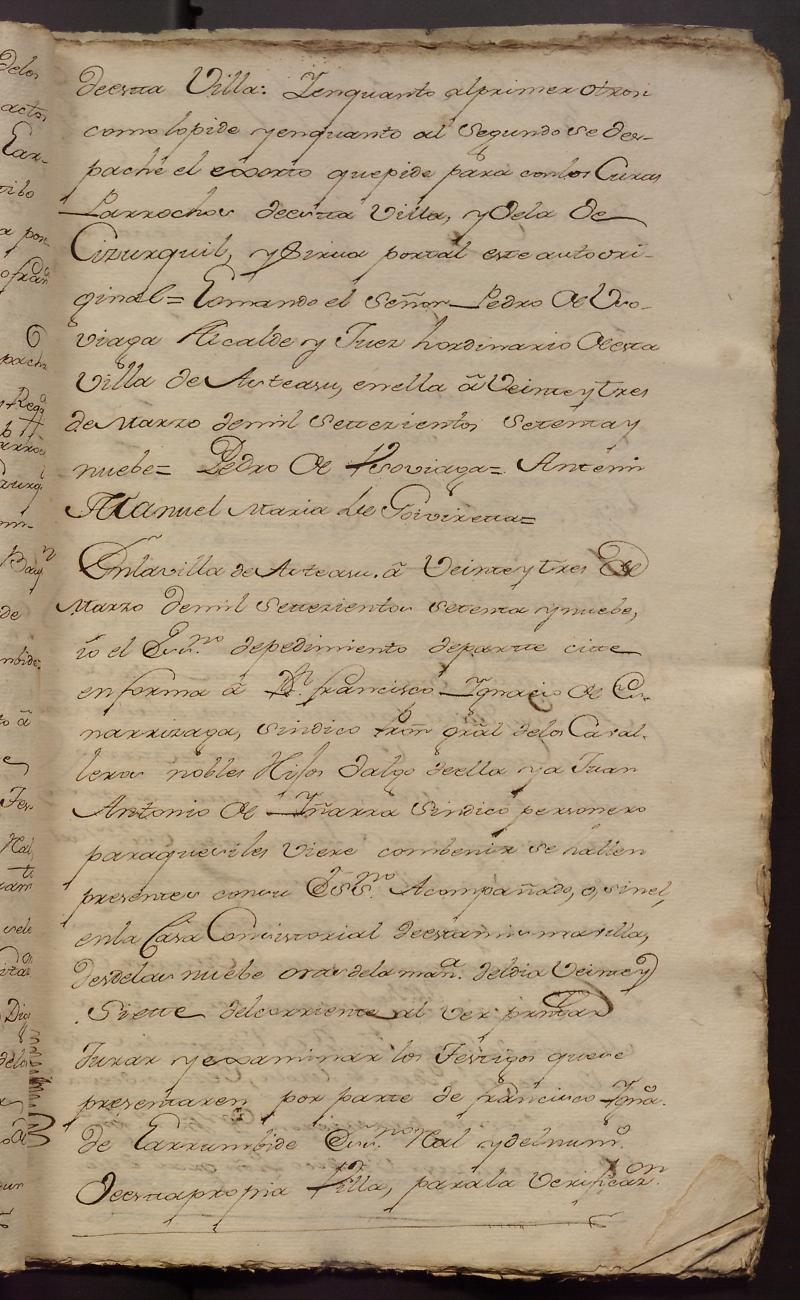 deesta Villa: Yenquanto alprimer otrosi
como lopide yenquanto al Segundo se des-
pache el exorto quepide para conlos Curas
Parrochos deesta Villa, ydela de
Cizurquil, ySirva portal este autoori-
ginal= Lomando el Señor Pedro de Vso-
viaga Alcalde y Juez hordinario deesta
Villa de Asteasu, enella â Veinteytres
de Marzo demil Settezientos Setenta y
nuebe= Pedro de Vsoviaga= Antemi
Manuel Maria de Goiviretta=
Enlavilla de Asteasu. â Veinteytres de
Marzo demil Settezientos setenta ynuebe,
io el Ess.no depedimiento departe citte
enforma â Dn. francisco Ignacio de
narrizaga, Sindico Pror gral delos Caval-
leros nobles Hijos dalgo deella ya Juan
Antonio de Yñarra Sindico personero
paraquesiles Viere combenir se hallen
presentes consu Ess.no Acompañado, o, sinel,
enla Casa Concistorial deestamismavilla,
desdelas nuebe oras dela mañ.a deldia Veintey
Siette delcorriente al ver prntar
Jurar yexaminar los Testigos quese
presentaren por parte de francisco Ignã.
de Larrumbide Ess.no Ral ydelnum.o
deestapropia Villa, parala Verificaz.on